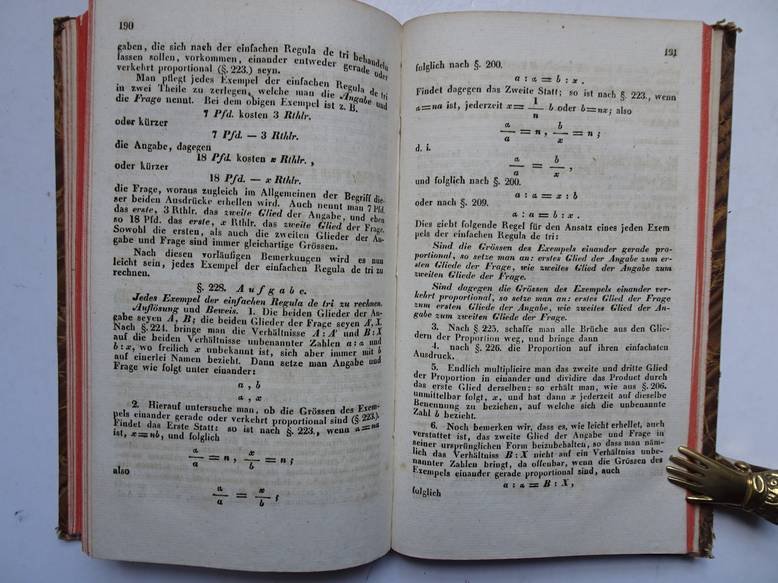 190
gaben, die sich nach der einfachen Regula de tri behandeln
lassen sollen, vorkommen, einander entweder gerade oder
verkehrt proportional (§. 223.) seyn.
Man pflegt jedes Exempel der einfachen Regula de tri
in zwei Theile zu zerlegen, welche man die Angabe und
die Frage nennt. Bei dem obigen Exempel ist z. B.
7 Pfd. kosten 3 Rthlr.
oder kürzer
7 Pfd. — 3 Rthlr.
die Angabe, dagegen
18 Pfd. kosten x Rthlr.,
oder kürzer
18 Pfd. — x Rthlr.
die Frage, woraus zugleich im Allgemeinen der Begriff die-
ser beiden Ausdrücke erhellen wird. Auch nennt man 7 Pfd.
das erste, 3 Rthlr. das zweite Glied der Angabe, und eben
so 18 Pfd. das erste, x Rthlr. das zweite Glied der Frage.
Sowohl die ersten, als auch die zweiten Glieder der An-
gabe und Frage sind immer gleichartige Grössen.
Nach diesen vorläufigen Bemerkungen wird es nun
leicht sein, jedes Exempel der einfachen Regula de tri zu
rechnen.
§. 228. Aufgabe.
Jedes Exempel der einfachen Regula de tri zu rechnen.
Auflösung und Beweis. 1. Die beiden Glieder der An-
gabe seyen A, B; die beiden Glieder der Frage seyen A', X.
Nach §. 224. bringe man die Verhältnisse A : A' und B : X
auf die beiden Verhältnisse unbenannter Zahlen a : α und
b : x, wo freilich x unbekannt ist, sich aber immer mit b
auf einerlei Namen bezieht. Dann setze man Angabe und
Frage wie folgt unter einander:
a , b
α , x
2. Hierauf untersuche man, ob die Grössen des Exem-
pels einander gerade oder verkehrt proportional sind (§. 223.)
Findet das Erste Statt: so ist nach §. 223., wenn α = na
ist, x = nb, und folglich
α/a = n , x/b = n ;
also
α/a = x/b ;
191
folglich nach §. 200.
a : α = b : x .
Findet dagegen das Zweite Statt; so ist nach §. 223., wenn
α = na ist, jederzeit x = 1/n b oder b = nx; also
α/a = n , b/x = n ;
d. i.
α/a = b/x ,
und folglich nach §. 200.
a : α = x : b
oder nach §. 209.
α : a = b : x .
Dies giebt folgende Regel für den Ansatz eines jeden Exem
pels der einfachen Regula de tri:
Sind die Grössen des Exempels einander gerade pro-
portional, so setze man an: erstes Glied der Angabe zum er-
sten Gliede der Frage, wie zweites Glied der Angabe zum
zweiten Gliede der Frage.
Sind dagegen die Grössen des Exempels einander ver-
kehrt proportional, so setze man an: erstes Glied der Frage
zum ersten Gliede der Angabe, wie zweites Glied der An-
gabe zum zweiten Gliede der Frage.
3. Nach §. 225. schaffe man alle Brüche aus den Glie-
dern der Proportion weg, und bringe dann
4. nach §. 226. die Proportion auf ihren einfachsten
Ausdruck.
5. Endlich multiplicire man das zweite und dritte Glied
der Proportion in einander und dividire das Product durch
das erste Glied derselben; so erhält man, wie aus §. 206.
unmittelbar folgt, x, und hat dann x jederzeit auf dieselbe
Benennung zu beziehen, auf welche sich die unbenannte
Zahl b bezieht.
6. Noch bemerken wir, dass es, wie leicht erhellet, auch
verstattet ist, das zweite Glied der Angabe und Frage in
seiner ursprünglichen Form beizubehalten, so dass man näm-
lich das Verhältniss B : X nicht auf ein Verhältniss unbe-
nannter Zahlen bringt, da offenbar, wenn die Grössen des
Exempels einander gerade proportional sind, auch
a : α = B : X,
folglich